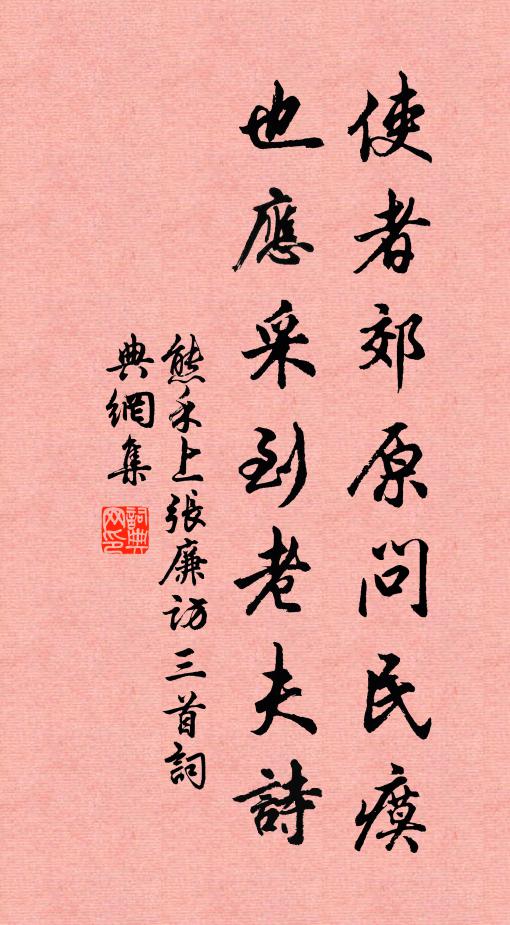 使者郊原問民瘼
也應采到老夫詩
熊禾上張廉訪三首詞
典網集
詞典網印